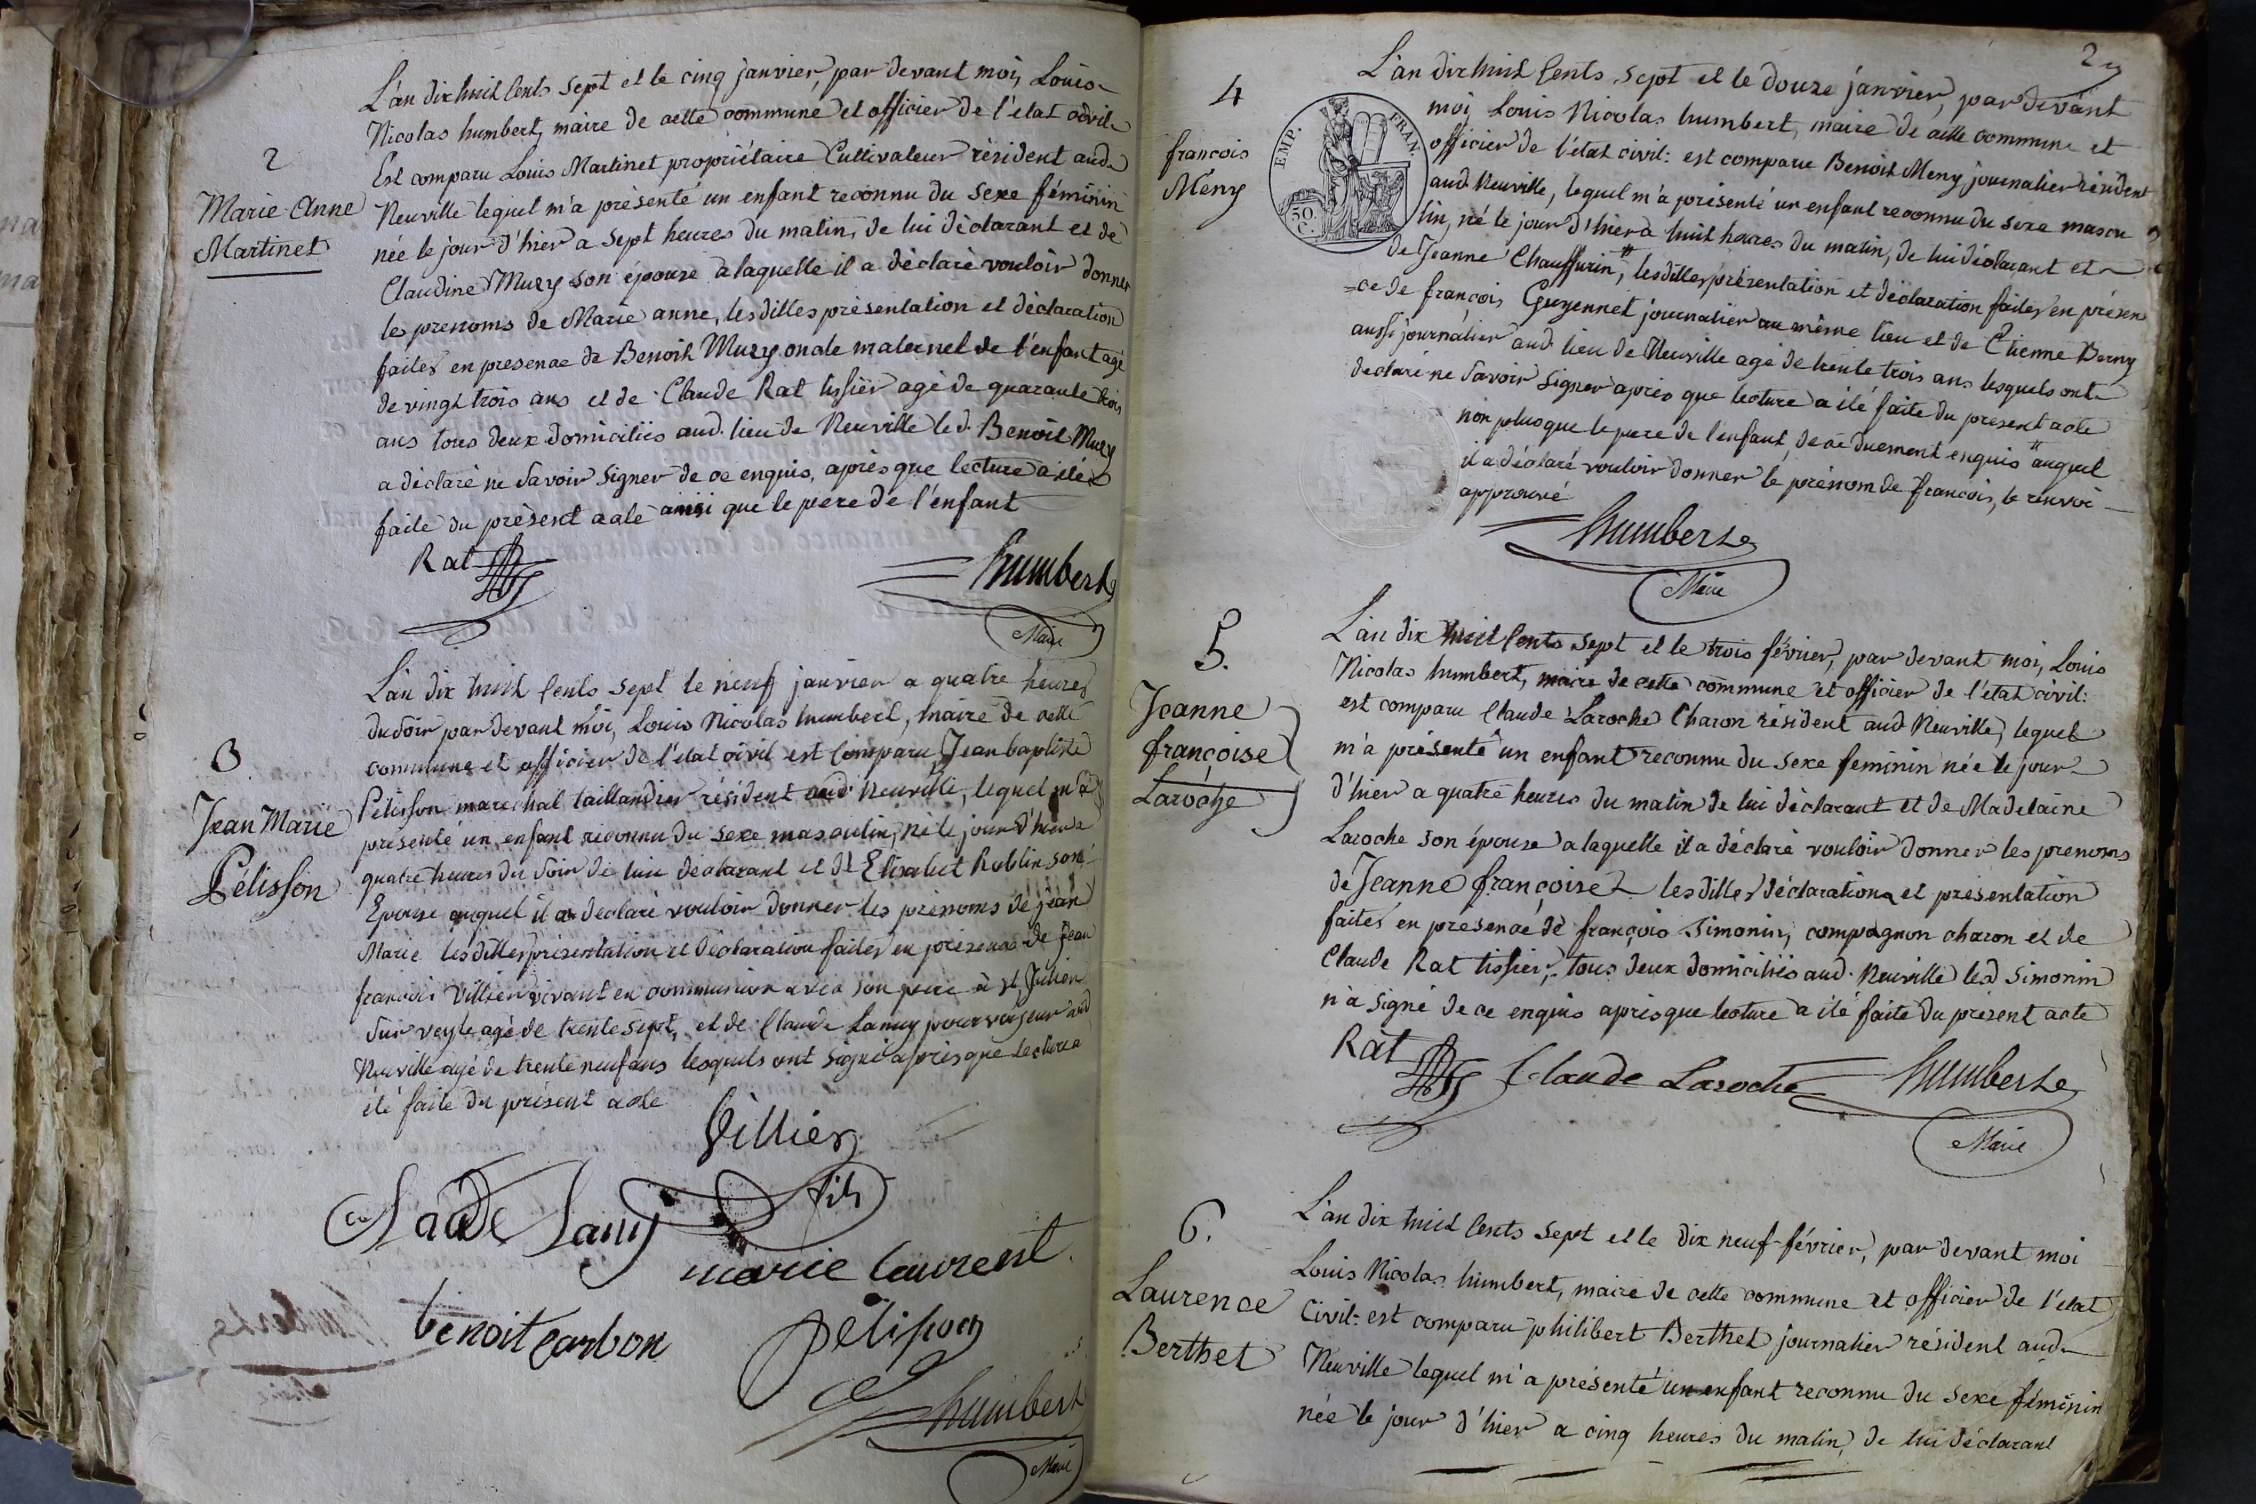 2
Marie Anne
Martinet
L'an dix huit cents sept et le cinq janvier, par devant moi, Louis
Nicolas humbert, maire de cette commune et officier de l'état civil
Est comparu Louis Martinet propriétaire Cultivateur résident aud.
Neuville lequel m'a présenté un enfant reconnu du sexe féminin
née le jour d'hier a sept heures du matin, de lui déclarant et de
Claudine Mury son épouse a laquelle il a déclaré vouloir donner
les prenoms de Marie anne, lesdittes présentation et déclaration
faites en presence de Benoit Mury oncle maternel de l'enfant agé
de vingt trois ans et de Claude Rat tissier agé de quarante trois
ans tous deux domiciliés aud. lieu de Neuville led. Benoit Mury
a déclaré ne savoir signer de ce enquis, après que lecture a été
faite du présent acte ainsi que le pere de l'enfant
Rat
humbert
Maire
3.
Jean Marie
Pélisson
L'an dix huit cents sept le neuf janvier a quatre heures
du soir par devant moi, Louis Nicolas humbert, maire de cette
commune et officier de l'état civil est comparu Jean baptiste
Pélisson marechal taillandier résident aud. Neuville, lequel m'a
présenté un enfant reconnu du sexe masculin, né le jour d'hier a
quatre heures du soir de lui déclarant et d'Elisabet Roblin son
Epouse auquel il a déclaré vouloir donner les prénoms de jean
Marie lesdittes présentation et déclaration faites en présence de jean
françois Villier vivant en communion avec son pere à st Julien
sur veyle agé de trente sept, et de Claude Lamy pourvoyeur aud
Neuville agé de trente neuf ans lesquels ont signé après que lecture a
été faite du présent acte
Villier
fils
Claude Lamy
marie laurent
benoit carbon
pelisson
humbert
Maire
2
4
françois
Mény
EMP. FRAN.
50. C.
L'an dix huit cents sept et le douze janvier, par devant
moi Louis Nicolas humbert, maire de cette commune et
officier de l'état civil: est comparu Benoit Meny journalier résident
aud. Neuville, lequel m'a présenté un enfant reconnu du sexe mascu
lin, né le jour d'hier a huit heures du matin, de lui déclarant et
de Jeanne Chauffurin #, lesdittes présentation et déclaration faites en présen
=ce de françois Guyennet journalier au même lieu et de Etienne Berny
aussi journalier aud. lieu de Neuville agé de trente trois ans lesquels ont
declaré ne savoir signer après que lecture a été faite du present acte
non plus que le pere de l'enfant, de ce duement enquis # auquel
il a déclaré vouloir donner le prénom de françois, le renvoi
approuvé
humbert
Maire
5.
Jeanne
françoise
Laroche
L'an dix huit cents sept et le trois février, par devant moi, Louis
Nicolas humbert, maire de cette commune et officier de l'état civil:
est comparu Claude Laroche Charon résident aud Neuville, lequel
m'a présenté un enfant reconnu du sexe feminin née le jour
d'hier a quatre heures du matin de lui déclarant et de Madelaine
Laroche son épouse a laquelle il a déclaré vouloir donner les prenoms
de Jeanne françoise lesdittes déclaration et présentation
faites en presence de françois Simonin, compagnon charon et de
Claude Rat tissier, tous deux domiciliés aud. Neuville led Simonin
n'a signé de ce enquis après que lecture a été faite du présent acte
Rat
Claude Laroche
humbert
Maire
6.
Laurence
Berthet
L'an dix huit cents sept et le dix neuf février, par devant moi
Louis Nicolas humbert, maire de cette commune et officier de l'état
Civil: est comparu philibert Berthet journalier résident aud
Neuville lequel m'a présenté un enfant reconnu du sexe féminin
née le jour d'hier a cinq heures du matin, de lui déclarant